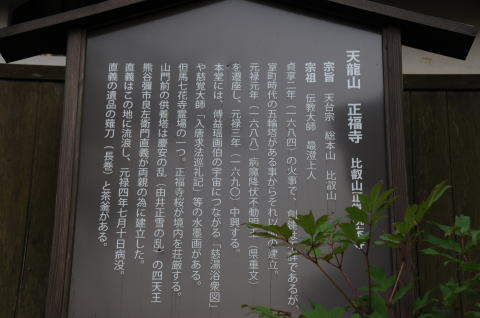 天龍山 正福寺 比叡山
宗旨 天台宗 総本山 比叡山
宗祖 伝教大師 最澄上人
貞享二年(一六八四)の火事で、詳であるが、
室町時代の五輪塔がある事からそれ以の建立。
元禄元年(一六八八)病魔降伏不動明(県重文)
を遷座し、元禄三年(一六九〇)中興する。
本堂には、傅益瑶画伯の宇宙につながる「慈湯浴衆図」
や慈覚大師「入唐求法巡礼記」等の水墨画がある。
但馬七花寺霊場の一つ。正福寺桜が境内を荘厳する。
山門前の供養塔は慶安の乱(由井正雪の乱)の四天王
熊谷彌市良左衛門直義が両親の為に建立した。
直義はこの地に流浪し、元禄四年七月十日病没。
直義の遺品の薙刀(長巻)と茶釜がある。